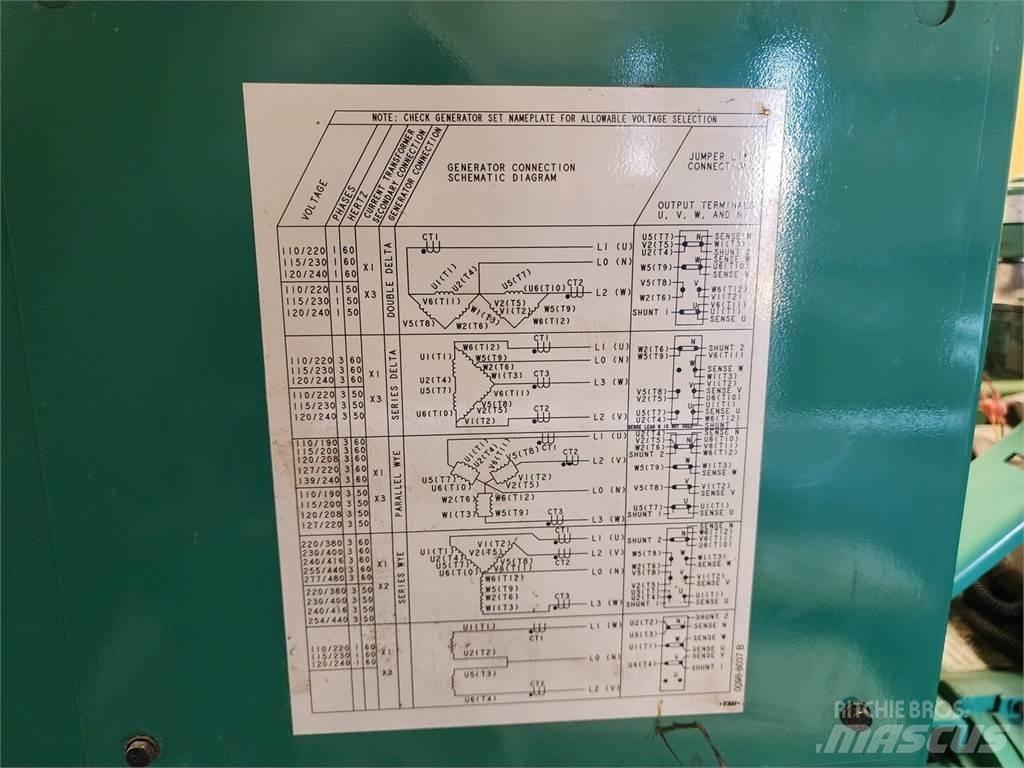 NOTE: CHECK GENERATOR SET NAMEPLATE FOR ALLOWABLE VOLTAGE SELECTION
VOLTAGE
PHASES
HERTZ
CURRENT TRANSFORMER
SECONDARY CONNECTION
GENERATOR CONNECTION
GENERATOR CONNECTION
SCHEMATIC DIAGRAM
JUMPER LIN
CONNECTION
OUTPUT TERMINALS
U, V, W, AND N
110/220 1 60
115/230 1 60
120/240 1 60
X1
110/220 1 50
115/230 1 50
120/240 1 50
X3
DOUBLE DELTA
CT1
L1 (U)
L0 (N)
U1(T1)
U2(T4)
U5(T7)
(U6(T10)
CT2
L2 (W)
V5(T8)
V6(T11)
W2(T6)
W1(T3)
V2(T5)
V1(T2)
W5(T9)
W6(T12)
U5(T7)
V2(T5)
U2(T4)
W5(T9)
V5(T8)
W2(T6)
SHUNT 1
N
W
V
U
SENSE N
W1(T3)
SHUNT 2
SENSE W
U6(T10)
SENSE V
W6(T12)
V1(T2)
V6(T11)
U1(T1)
SENSE U
110/220 3 60
115/230 3 60
120/240 3 60
X1
110/220 3 50
115/230 3 50
120/240 3 50
X3
SERIES DELTA
W6(T12)
CT1
L1 (U)
U1(T1)
W5(T9)
L0 (N)
W2(T6)
W1(T3)
CT3
L3 (W)
U2(T4)
U5(T7)
V6(T11)
V5(T8)
V2(T5)
U6(T10)
V1(T2)
CT2
L2 (V)
W2(T6)
W5(T9)
V5(T8)
V2(T5)
U5(T7)
U2(T4)
SENSE LEAD N IS NOT USED
N
W
V
U
SHUNT 2
V6(T11)
SENSE W
W1(T3)
V1(T2)
SENSE V
U6(T10)
U1(T1)
SENSE U
W6(T12)
SHUNT
110/190 3 60
115/200 3 60
120/208 3 60
127/220 3 60
139/240 3 60
X1
110/190 3 50
115/200 3 50
120/208 3 50
127/220 3 50
X3
PARALLEL WYE
L1 (U)
CT1
U1(T1)
U2(T4)
V6(T11)
V5(T8)
CT2
L2 (V)
U5(T7)
U6(T10)
V1(T2)
V2(T5)
L0 (N)
W2(T6)
W6(T12)
W1(T3)
W5(T9)
CT3
L3 (W)
U2(T4)
V2(T5)
W2(T6)
SHUNT 2
W5(T9)
V5(T8)
U5(T7)
SHUNT 1
N
W
V
U
SENSE N
U6(T10)
V6(T11)
W6(T12)
W1(T3)
SENSE W
V1(T2)
SENSE V
U1(T1)
SENSE U
220/380 3 60
230/400 3 60
240/416 3 60
255/440 3 60
277/480 3 60
X1
220/380 3 50
230/400 3 50
240/416 3 50
254/440 3 50
X2
SERIES WYE
CT1
L1 (U)
U1(T1)
V1(T2)
L2 (V)
U2(T4)
V2(T5)
CT2
U5(T7)
V5(T8)
U6(T10)
V6(T11)
L0 (N)
W6(T12)
W5(T9)
W2(T6)
W1(T3)
CT3
L3 (W)
SHUNT 2
W5(T9)
W2(T6)
V5(T8)
V2(T5)
U5(T7)
U2(T4)
SHUNT 1
N
W
V
U
SENSE N
W6(T12)
V6(T11)
U6(T10)
W1(T3)
SENSE W
V1(T2)
SENSE V
U1(T1)
SENSE U
110/220 1 60
115/230 1 60
120/240 1 60
X1
U1(T1)
CT1
L1 (W)
U2(T2)
L0 (N)
U5(T3)
CT2
L2 (V)
U6(T4)
U2(T2)
U5(T3)
U1(T1)
U6(T4)
N
W
V
U
SHUNT 2
SENSE N
SENSE W
SENSE U
SENSE V
SHUNT 1
0098-8037 B
RITCHIE BROS.
MASCUS